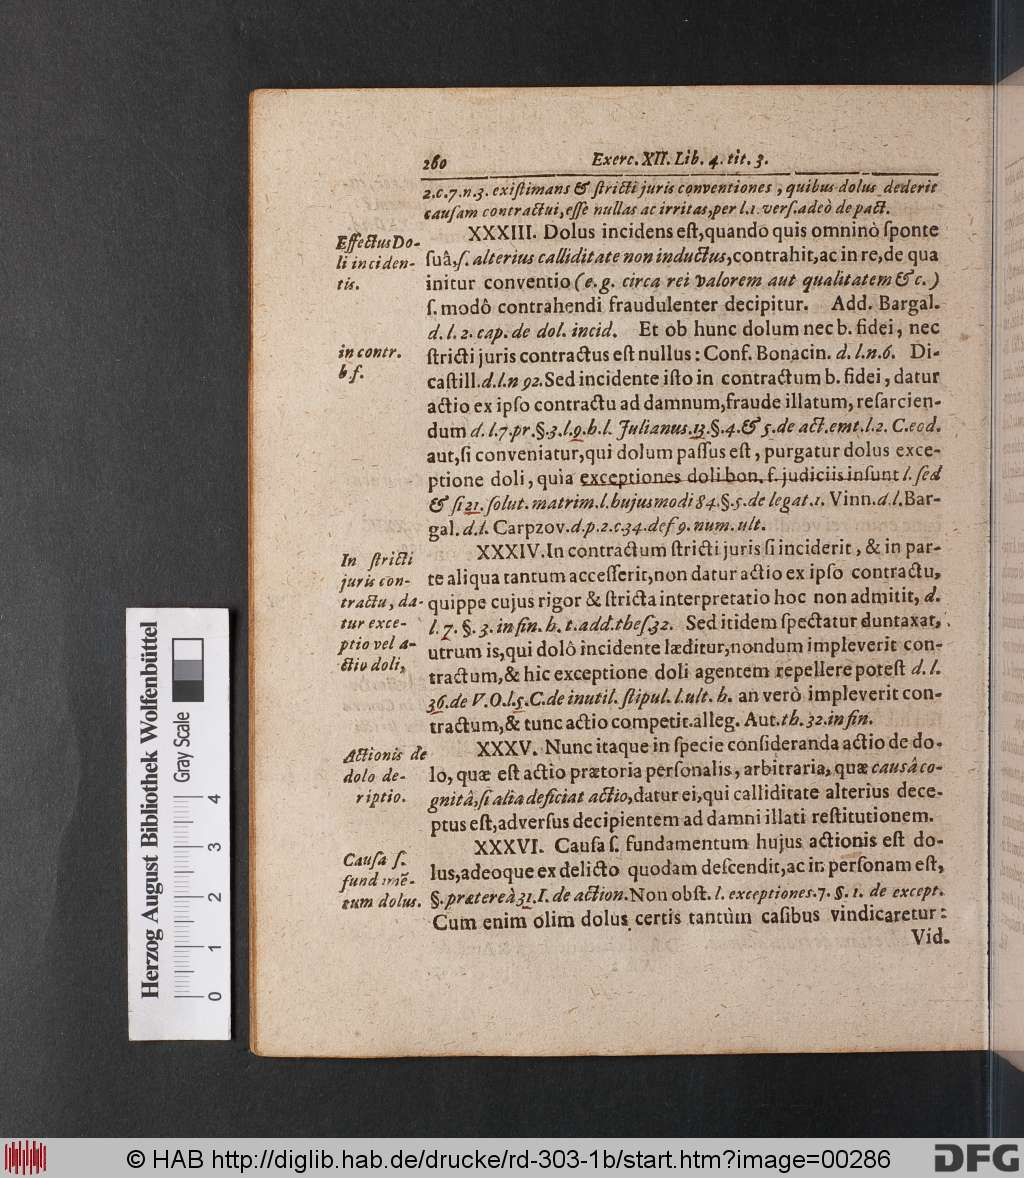 260 Exerc. XII. Lib. 4. tit. 3.
2.c.7.n.3. existimans & stricti juris conventiones, quibus dolus dederit
causam contractui, esse nullas ac irritas, per l.1. vers. adeò de pact.
Effectus Do-
li inciden-
tis.
XXXIII. Dolus incidens est, quando quis omninò sponte
suâ, s. alterius calliditate non inductus, contrahit, ac in re, de qua
initur conventio (e.g. circa rei valorem aut qualitatem &c.)
s. modô contrahendi fraudulenter decipitur. Add. Bargal.
d. l. 2. cap. de dol. incid. Et ob hunc dolum nec b. fidei, nec
in contr.
b f.
stricti juris contractus est nullus: Conf. Bonacin. d. l. n. 6. Di-
castill. d. l. n 92. Sed incidente isto in contractum b. fidei, datur
actio ex ipso contractu ad damnum, fraude illatum, resarcien-
dum d. l. 7. pr. §. 3. l. 9. h. l. Julianus. 13. §. 4. & 5. de act. emt. l. 2. C. eod.
aut, si conveniatur, qui dolum passus est, purgatur dolus exce-
ptione doli, quia exceptiones doli bon. f. judiciis insunt l. sed
& si 21. solut. matrim. l. hujusmodi 84. §. 5. de legat. 1. Vinn. d. l. Bar-
gal. d. l. Carpzov. d. p. 2. c 34. def 9. num. ult.
In stricti
juris con-
tractu, da-
tur exce-
ptio vel a-
ctio doli,
XXXIV. In contractum stricti juris si inciderit, & in par-
te aliqua tantum accesserit, non datur actio ex ipso contractu,
quippe cujus rigor & stricta interpretatio hoc non admitit, d.
l. 7. §. 3. in fin. h. t. add. thes 32. Sed itidem spectatur duntaxat,
utrum is, qui dolô incidente læditur, nondum impleverit con-
tractum, & hic exceptione doli agentem repellere potest d. l.
36. de V. O. l. 5. C. de inutil. stipul. l. ult. h. an verò impleverit con-
tractum, & tunc actio competit. alleg. Aut. th. 32. in fin.
Actionis de
dolo de-
riptio.
XXXV. Nunc itaque in specie consideranda actio de do-
lo, quæ est actio prætoria personalis, arbitraria, quæ causâ co-
gnitâ, si alia deficiat actio, datur ei, qui calliditate alterius dece-
ptus est, adversus decipientem ad damni illati restitutionem.
Causa s.
fundamē-
tum dolus.
XXXVI. Causa s. fundamentum hujus actionis est do-
lus, adeoque ex delicto quodam descendit, ac in personam est,
§. prætereà 31. I. de action. Non obst. l. exceptiones. 7. §. 1. de except.
Cum enim olim dolus certis tantùm casibus vindicaretur:
Vid.
Herzog August Bibliothek Wolfenbüttel
Gray Scale
0 1 2 3 4
© HAB http://diglib.hab.de/drucke/rd-303-1b/start.htm?image=00286
DFG